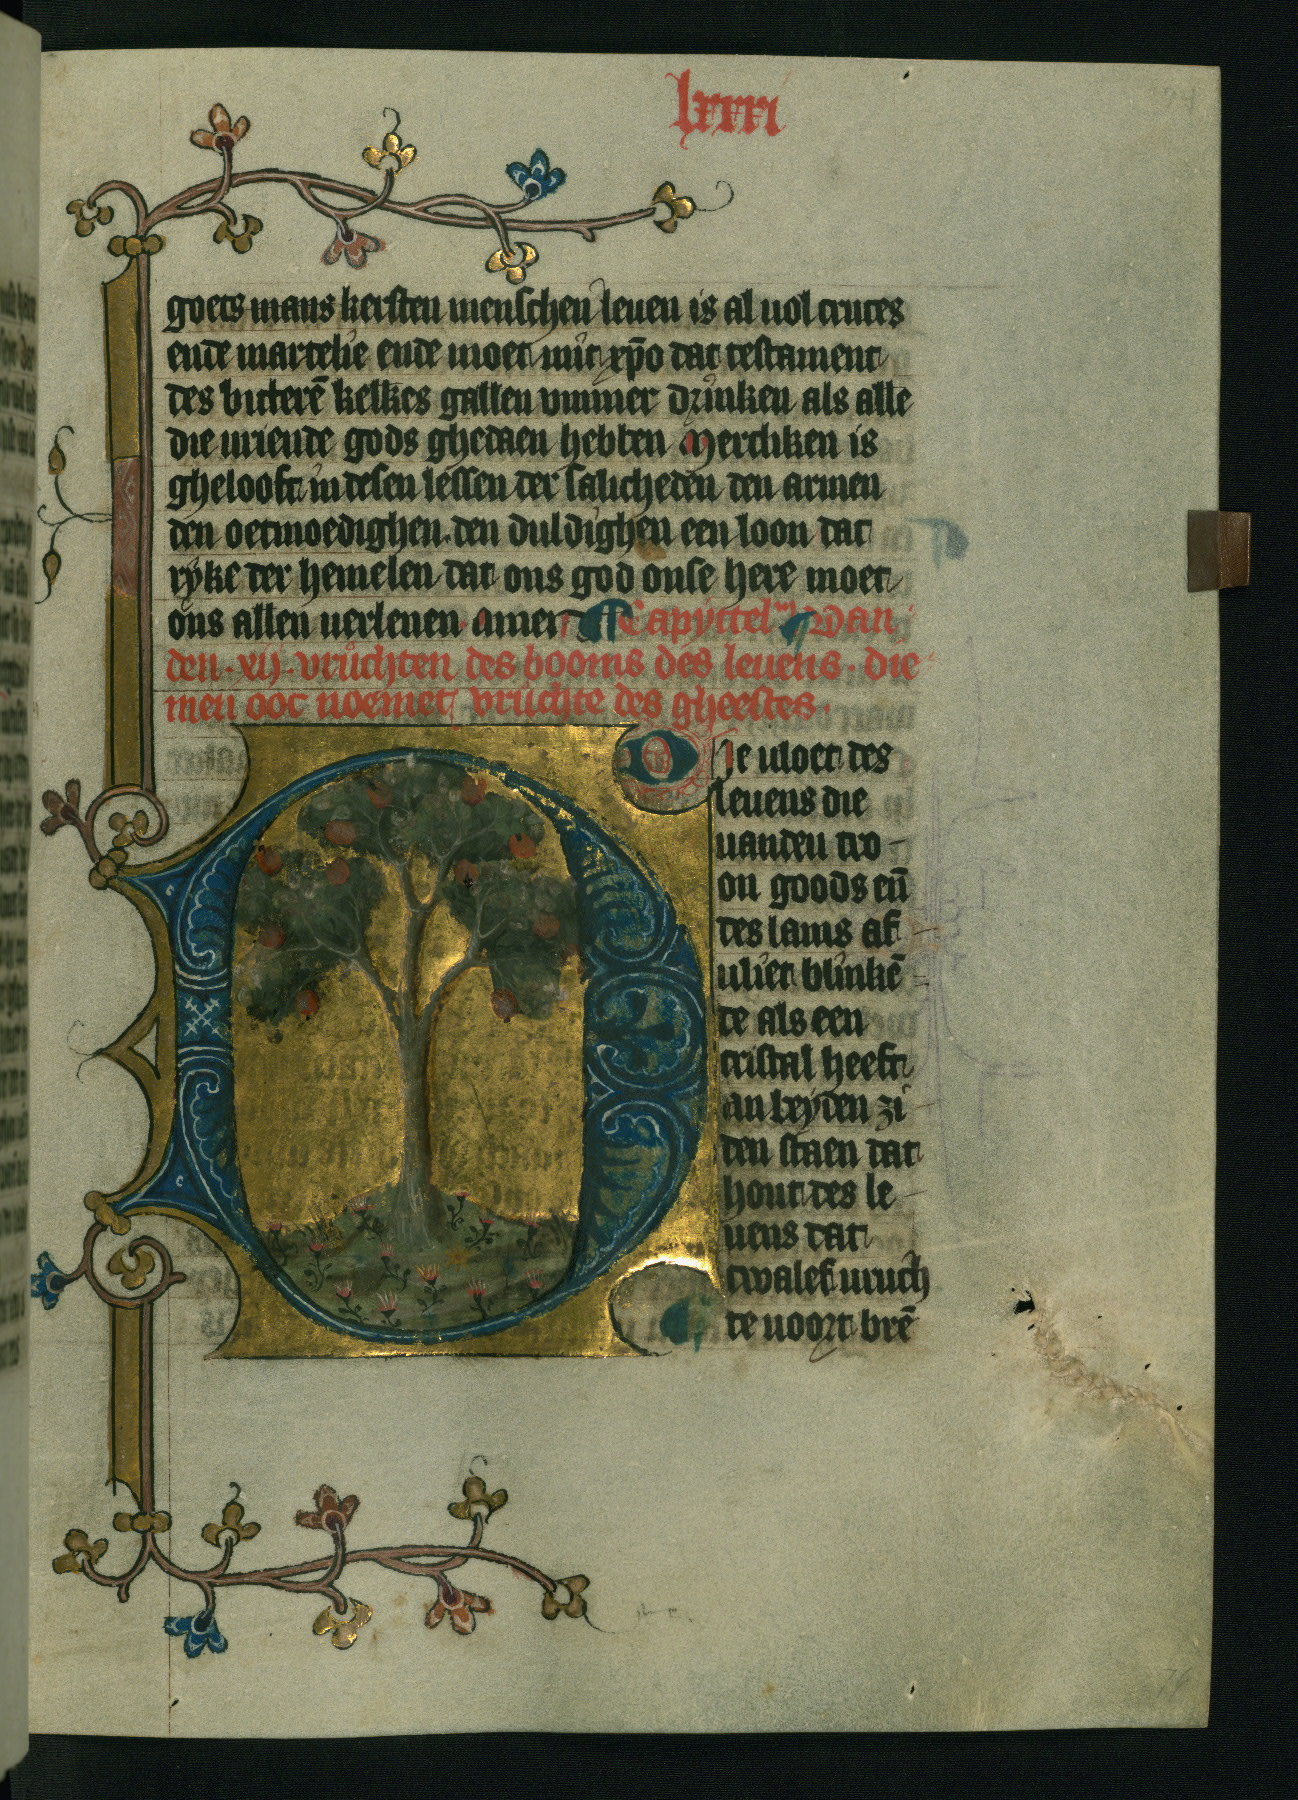 lxxxi
goets mans kersten menschen leuen is al uol cruces
ende martelie ende moet mit xp̄o dat testament
des bitterē kelkes gallen vmmer drinken als alle
die uriende gods ghedaen hebben Merchken is
ghelooft in desen lessen der salicheden den armen
den oetmoedighen. den duldighen een loon dat
ryke der hemelen dat ons god onse here moet
ons allen uerlenen Amen Capyttel Uan
den . xij . vruchten des booms des leuens . die
men ooc noemet vruchte des gheestes .
D
Je uloet des
leuens die
uanden tro
on goods eñ
des lams af
uliet blinkē
de als een
cristal heeft
an beyden zi
den staen dat
hout des le
uens dat
twalef uruch
te uoort brē
76